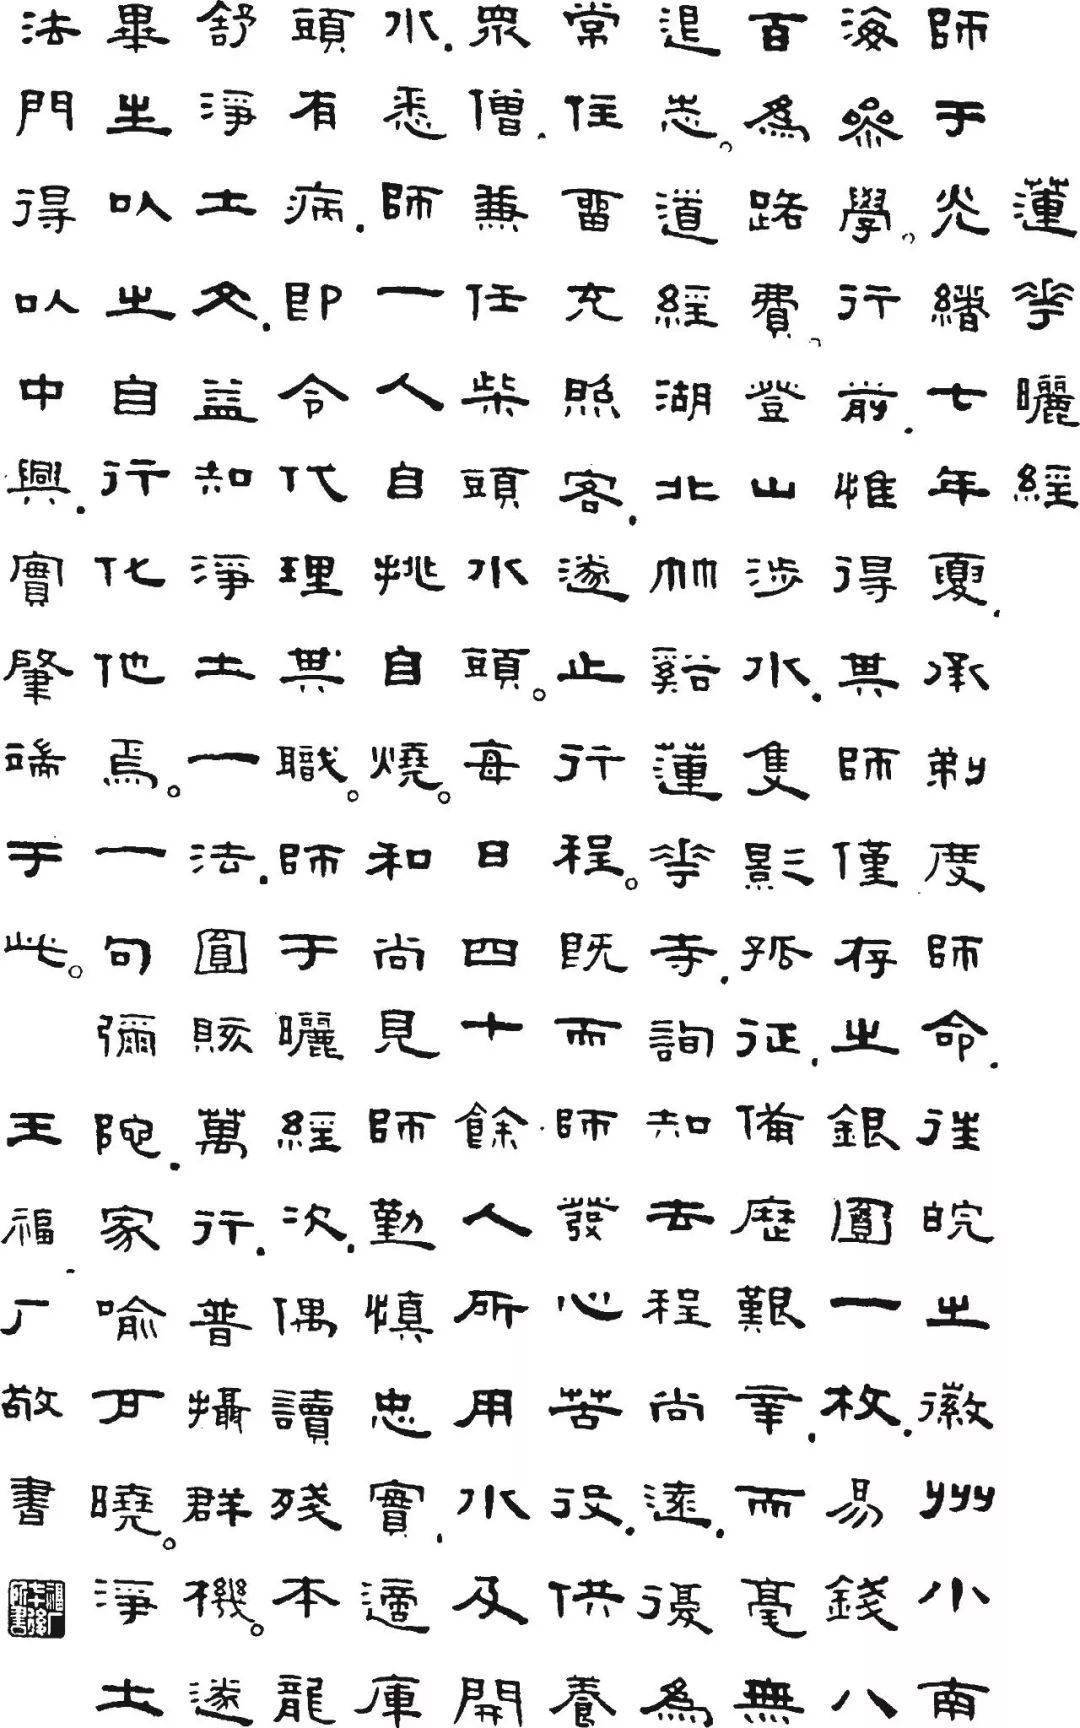 蓮華曬經
師于光緒七年夏.承剃度師命.往皖之徽州小南
海參學。行前.惟得其師僅存之銀圓一枚.易錢八
百為路費。登山涉水.隻影孤征.備歷艱辛.而毫無
退志。道經湖北竹谿蓮華寺.詢知去程尚遠.為
常住留充照客.遂止行程。既而師發心苦役.供養
眾僧.兼任柴頭水頭。每日四十餘人所用水及開
水.悉師一人自挑自燒。和尚見師勤慎忠實.適庫
頭有病.即令代理其職。師于曬經次.偶讀殘本龍
舒淨土文.益知淨土一法.圓賅萬行.普攝群機。遂
畢生以之自行化他焉。一句彌陀.家喻戶曉。淨土
法門得以中興.實肇端于此。 王福厂敬書